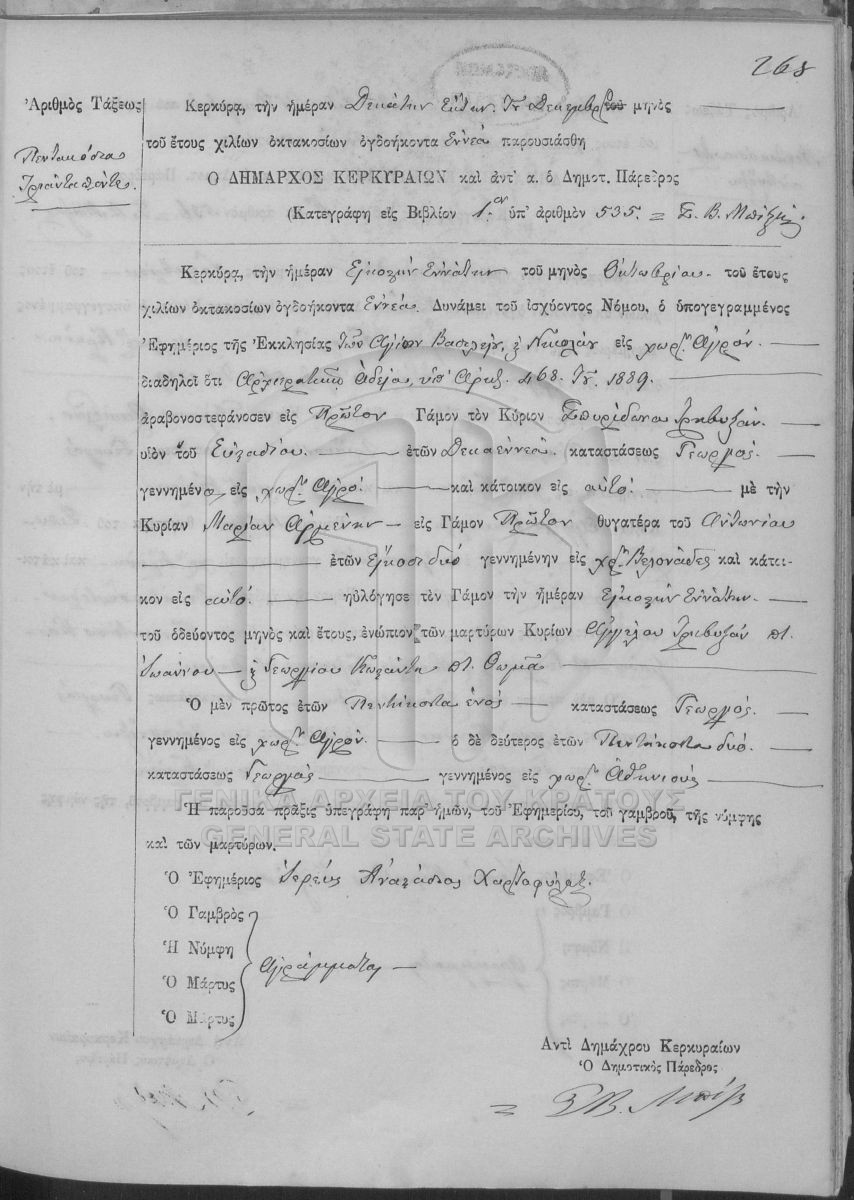 268
Ἀριθμὸς Τάξεως
Πεντακόσια
Τριάντα πέντε
Κερκύρᾳ, τὴν ἡμέραν Δεκάτην Ἕκτην τοῦ Δεκεμβρίου μηνὸς
τοῦ ἔτους χιλίων ὀκτακοσίων ὀγδοήκοντα Ἐννέα παρουσιάσθη
Ο ΔΗΜΑΡΧΟΣ ΚΕΡΚΥΡΑΙΩΝ καὶ ἀντ' α. ὁ Δημοτ. Πάρεδρος
(Κατεγράφη εἰς Βιβλίον 1.ον ὑπ' ἀριθμὸν 535.
Κερκύρᾳ, τὴν ἡμέραν Εἰκοστὴν Ἐννάτην τοῦ μηνὸς Ὀκτωβρίου. τοῦ ἔτους
χιλίων ὀκτακοσίων ὀγδοήκοντα Ἐννέα. Δυνάμει τοῦ ἰσχύοντος Νόμου, ὁ ὑπογεγραμμένος
Ἐφημέριος τῆς Ἐκκλησίας τῶν Ἁγίων Βασιλείου, Νικολάου εἰς χωρ. Ἀγρόν.
διαδηλοῖ ὅτι Ἀρχιερατικῇ Ἀδείᾳ, ὑπ' Ἀριθ. 468. 1889.
ἀραβονοστεφάνοσεν εἰς Πρῶτον Γάμον τὸν Κύριον Σπυρίδωνα Τριβυζάν.
υἱὸν τοῦ Εὐσταθίου. ἐτῶν Δεκαεννέα. καταστάσεως Γεωργός.
γεννημένο εἰς χωρ. Ἀγρό. καὶ κάτοικον εἰς αὐτό. μὲ τὴν
Κυρίαν Μαρίαν Ἀρμένην εἰς Γάμον Πρῶτον θυγατέρα τοῦ Ἀντωνίου
ἐτῶν Εἴκοσι δύο γεννημένην εἰς χωρ. Βελονάδες καὶ κάτοι-
κον εἰς αὐτό. ηὐλόγησε τὸν Γάμον τὴν ἡμέραν Εἰκοστὴν Ἐννάτην.
τοῦ ὁδεύοντος μηνὸς καὶ ἔτους, ἐνώπιον τῶν μαρτύρων Κυρίων Ἀγγέλου Τριβυζάν
Ἰωάννου Γεωργίου Θωμᾶ
Ὁ μὲν πρῶτος ἐτῶν Πεντήκοντα ἑνός καταστάσεως Γεωργός.
γεννημένος εἰς χωρ. Ἀγρόν. ὁ δὲ δεύτερος ἐτῶν Πεντήκοντα δύο.
καταστάσεως Γεωργός γεννημένος εἰς χωρ. Ἀθηνιούς
ΓΕΝΙΚΑ ΑΡΧΕΙΑ ΤΟΥ ΚΡΑΤΟΥΣ
Ἡ παροῦσα πρᾶξις ὑπεγράφη παρ' ἡμῶν, τοῦ Ἐφημερίου, τοῦ γαμβροῦ, τῆς νύμφης
GENERAL STATE ARCHIVES
καὶ τῶν μαρτύρων.
Ὁ Ἐφημέριος Ἱερεὺς Ἀναστάσιος
Ὁ Γαμβρὸς
Ἡ Νύμφη
Ἀγράμματοι
Ὁ Μάρτυς
Ὁ Μάρτυς
Αντὶ Δημάχρου Κερκυραίων
Ὁ Δημοτικὸς Πάρεδρος